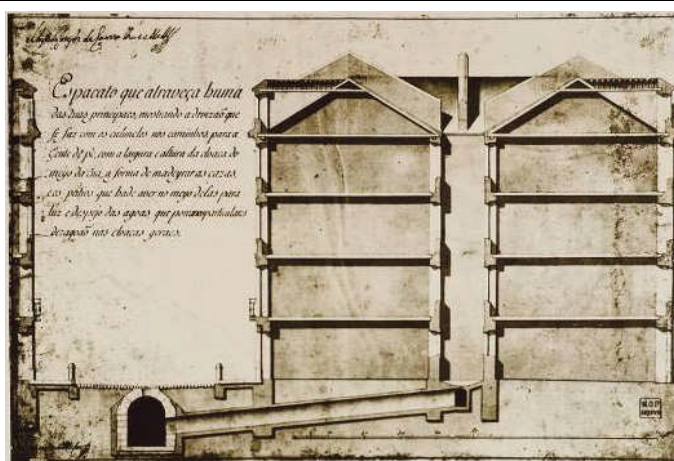 Espacato que atraveça huma
das duas principaes, mostrando a divizaõ que
se faz com os culunelos nos caminhos para a
Gente de pè, com a largura e altura da cloaca do
meyo da rua, a forma de madeyrar as cazas,
e os páteos que hade aver no meyo delas para
luz e despejo das agoas que por canos particulares
dezagoaõ nas cloacas geraes.
M.O.P.